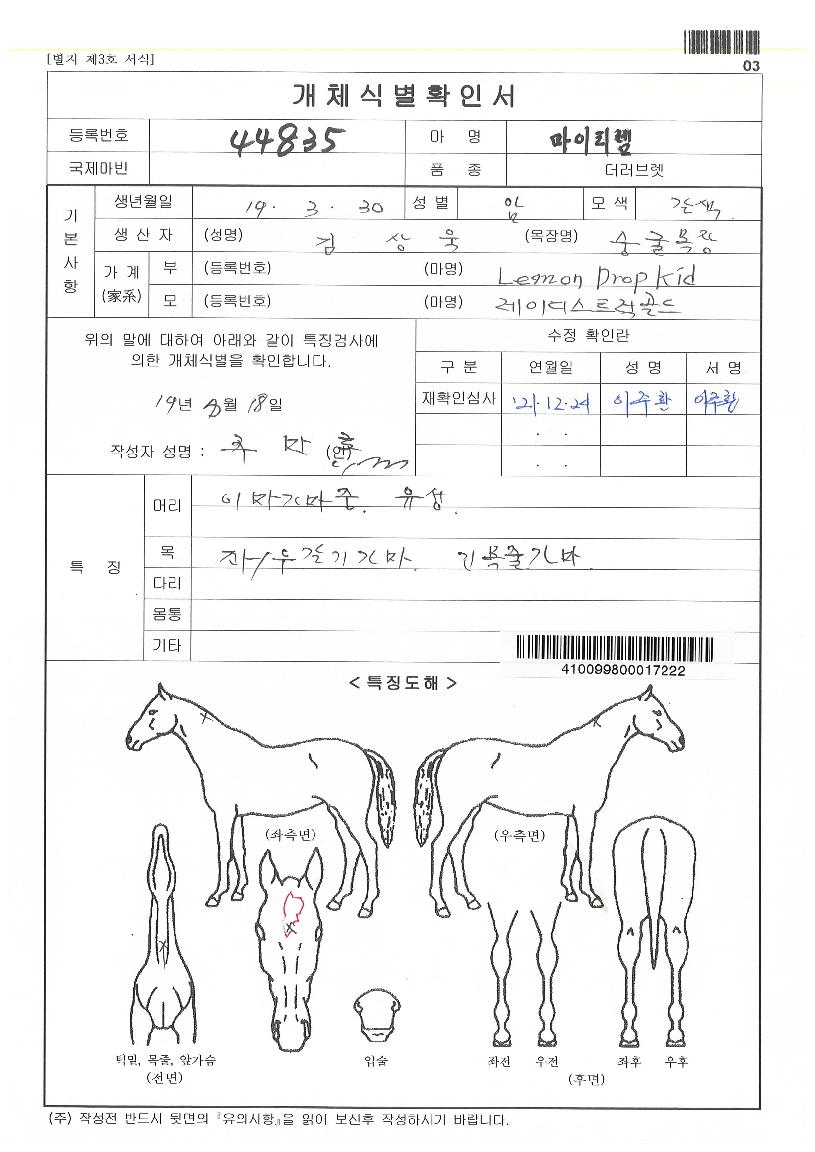 [별지 제3호 서식]
03
개체식별확인서
등록번호 44835 마 명 마이티젬
국제마빈 품 종 더러브렛
기본사항
생년월일 19. 3. 30 성별 암 모색 갈색
생 산 자 (성명) 김상욱 (목장명) 송굴목장
가 계 (家系) 부 (등록번호) (마명) Lemon Drop Kid
모 (등록번호) (마명) 레이디스트럭골드
위의 말에 대하여 아래와 같이 특징검사에
의한 개체식별을 확인합니다.
19년 월 18일
작성자 성명 : (인)
수정 확인란
구 분 연월일 성 명 서 명
재확인심사 '21.12.24 이주환 이주환
. .
. .
특 징
머리 이마가마중. 유성.
목 좌/우갈기가마. 목줄가마.
다리
몸통
기타
410099800017222
< 특징도해 >
(좌측면) (우측면)
턱밑, 목줄, 앞가슴
(전면)
입술
좌전 우전 좌후 우후
(후면)
(주) 작성전 반드시 뒷면의 『유의사항』을 읽어 보신후 작성하시기 바랍니다.